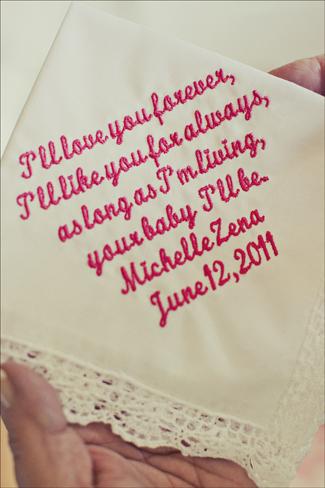 I'll love you forever,
I'll like you for always,
as long as I'm living,
your baby I'll be.
Michelle Zena
June 12, 2011